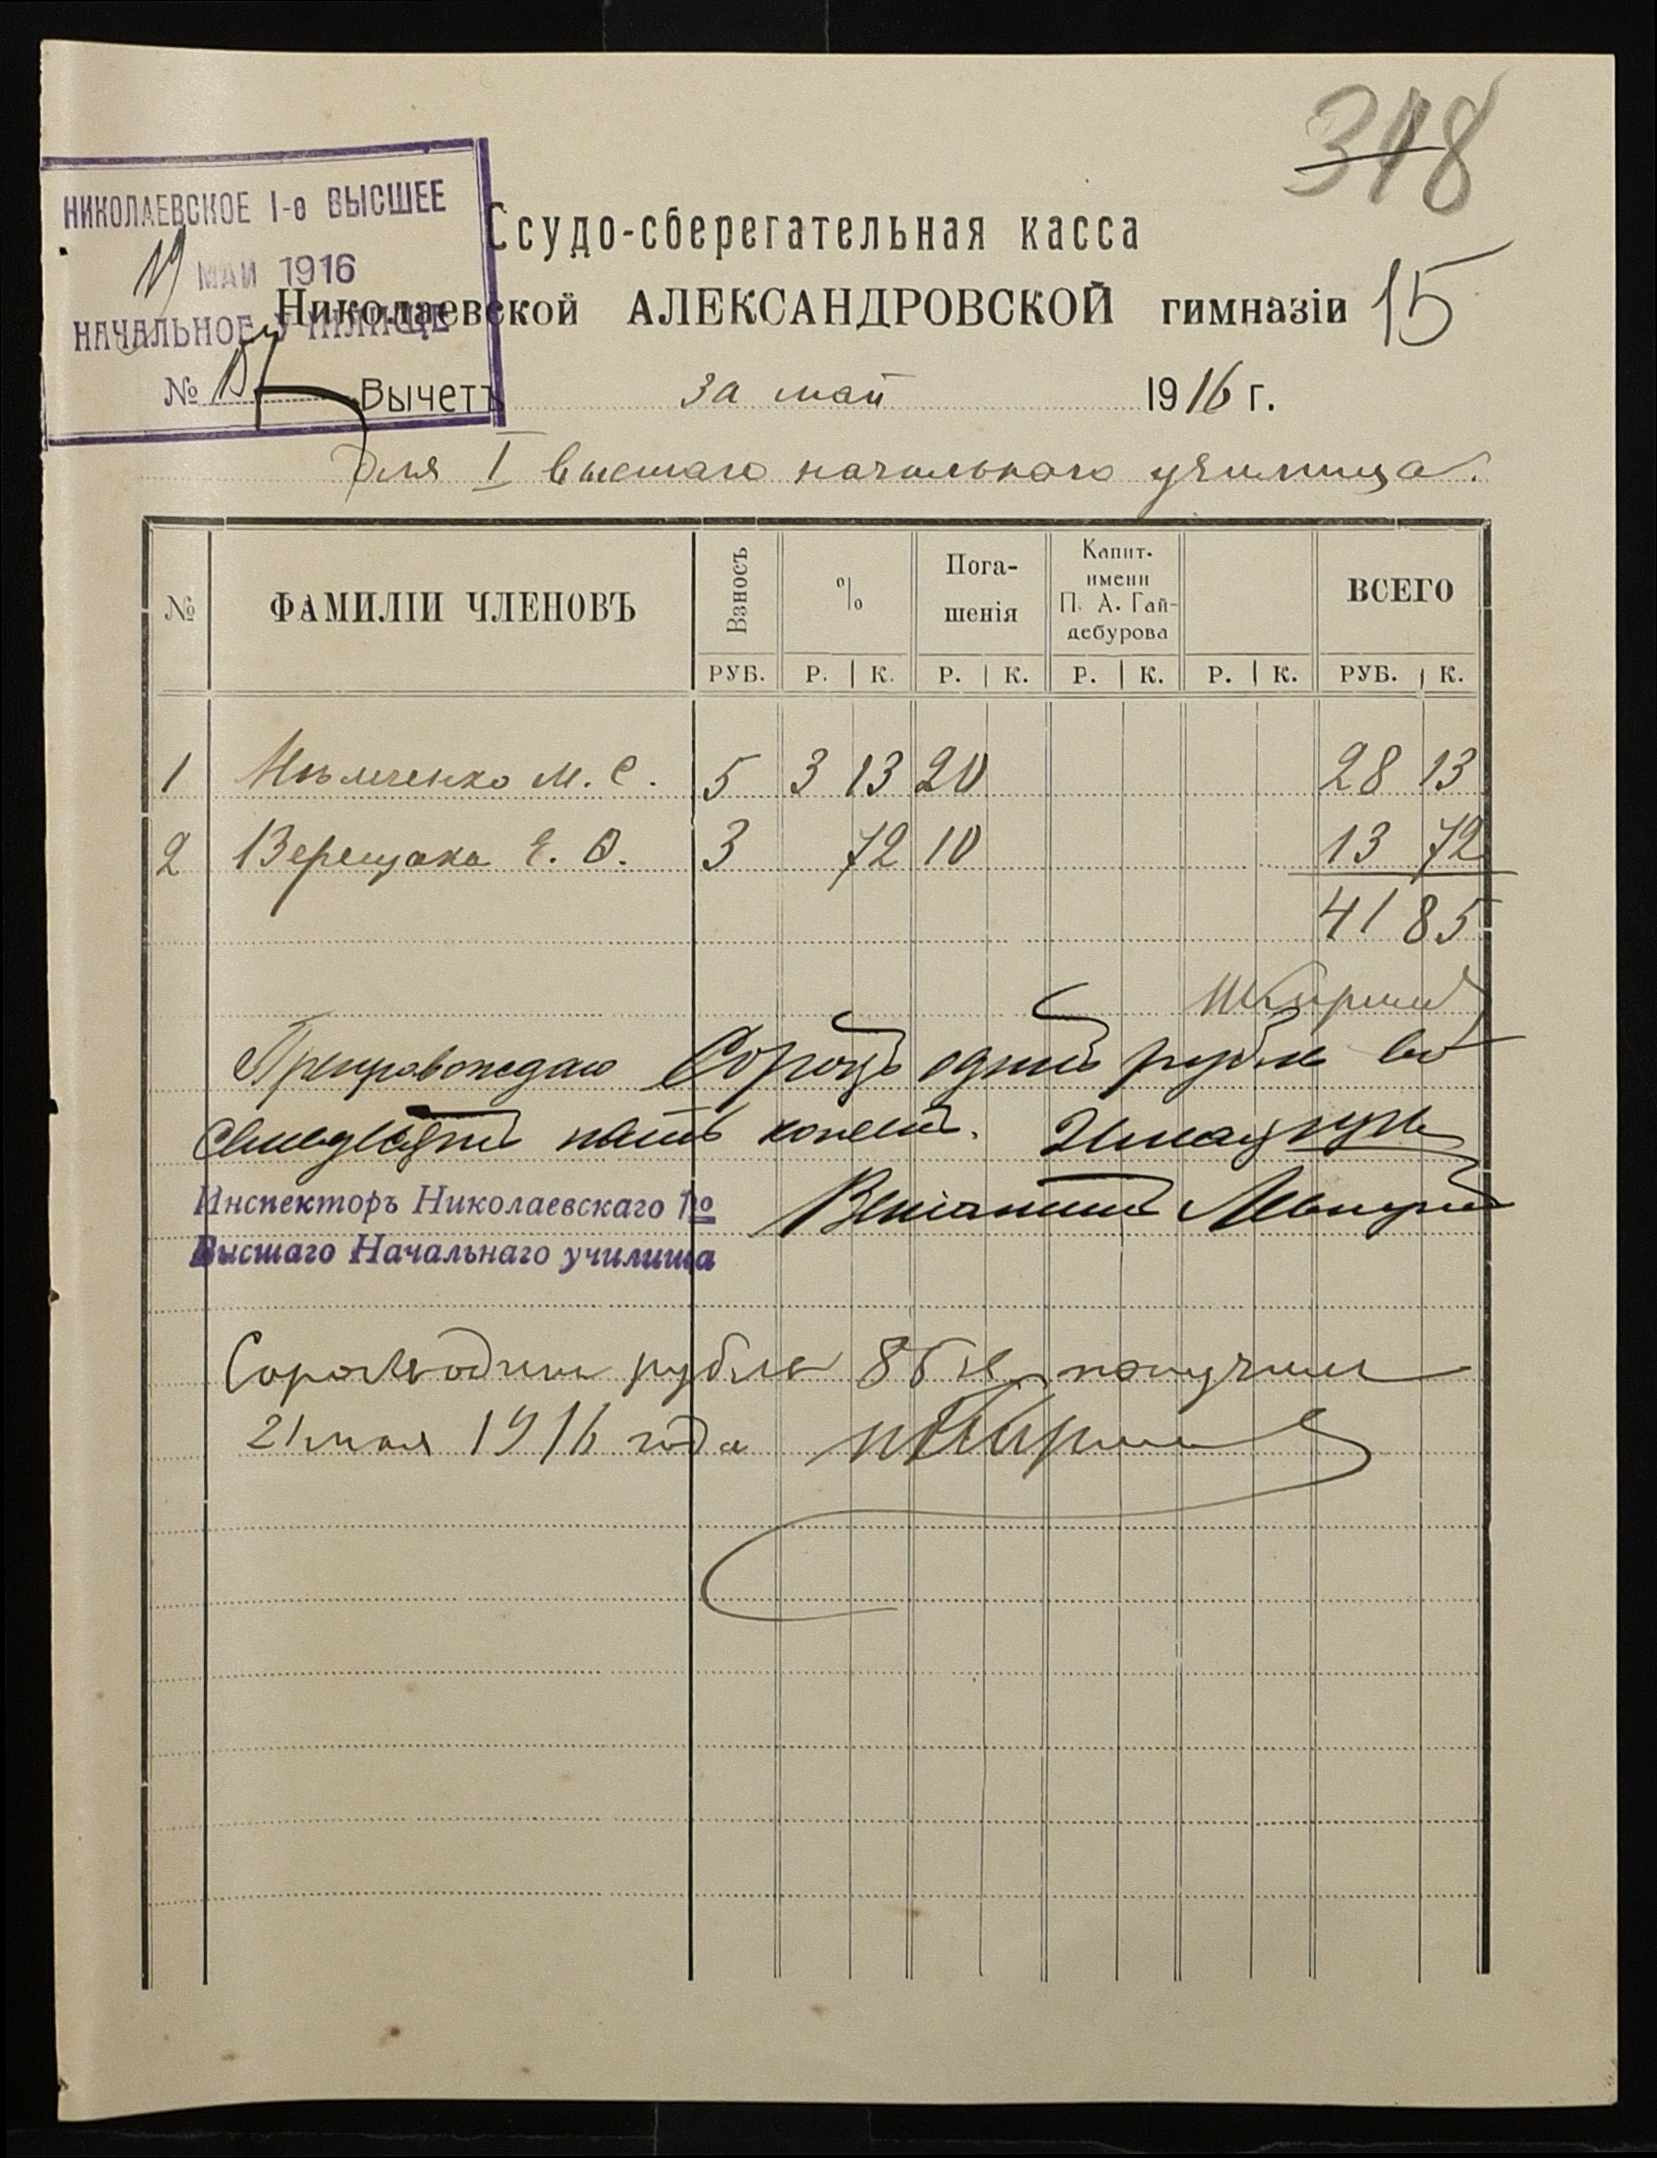 318
НИКОЛАЕВСКОЕ I-е ВЫСШЕЕ
19 МАЙ 1916
НАЧАЛЬНОЕ УЧИЛИЩЕ
№
Ссудо-сберегательная касса
Николаевской АЛЕКСАНДРОВСКОЙ гимназіи 15
Вычетъ за май 1916 г.
для I высшаго начальнаго училища.
№ ФАМИЛІИ ЧЛЕНОВЪ Взносъ % Пога-шенія Капит. имени П. А. Гай-дебурова ВСЕГО
РУБ. Р. К. Р. К. Р. К. Р. К. РУБ. К.
1 Нѣмченко М. С. 5 3 13 20 28 13
2 Верещака Е. Ѳ. 3 72 10 13 72
41 85
Препровождаю Сорокъ одинъ рубль
пять копеек.
Инспекторъ Николаевскаго 1го
Высшаго Начальнаго училища
Сорок один рубль 85 к получил
21 мая 1916 года